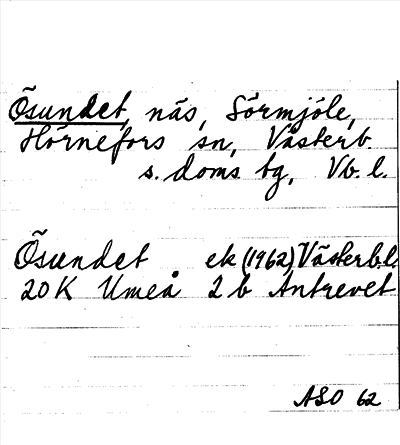 Ösundet, näs, Sörmjöle,
Hörnefors sn, Västerb.
s. doms tg, Vb. l.
Ösundet ek (1962) Västerb.l.
20K Umeå 2b Antrevet
ASO 62